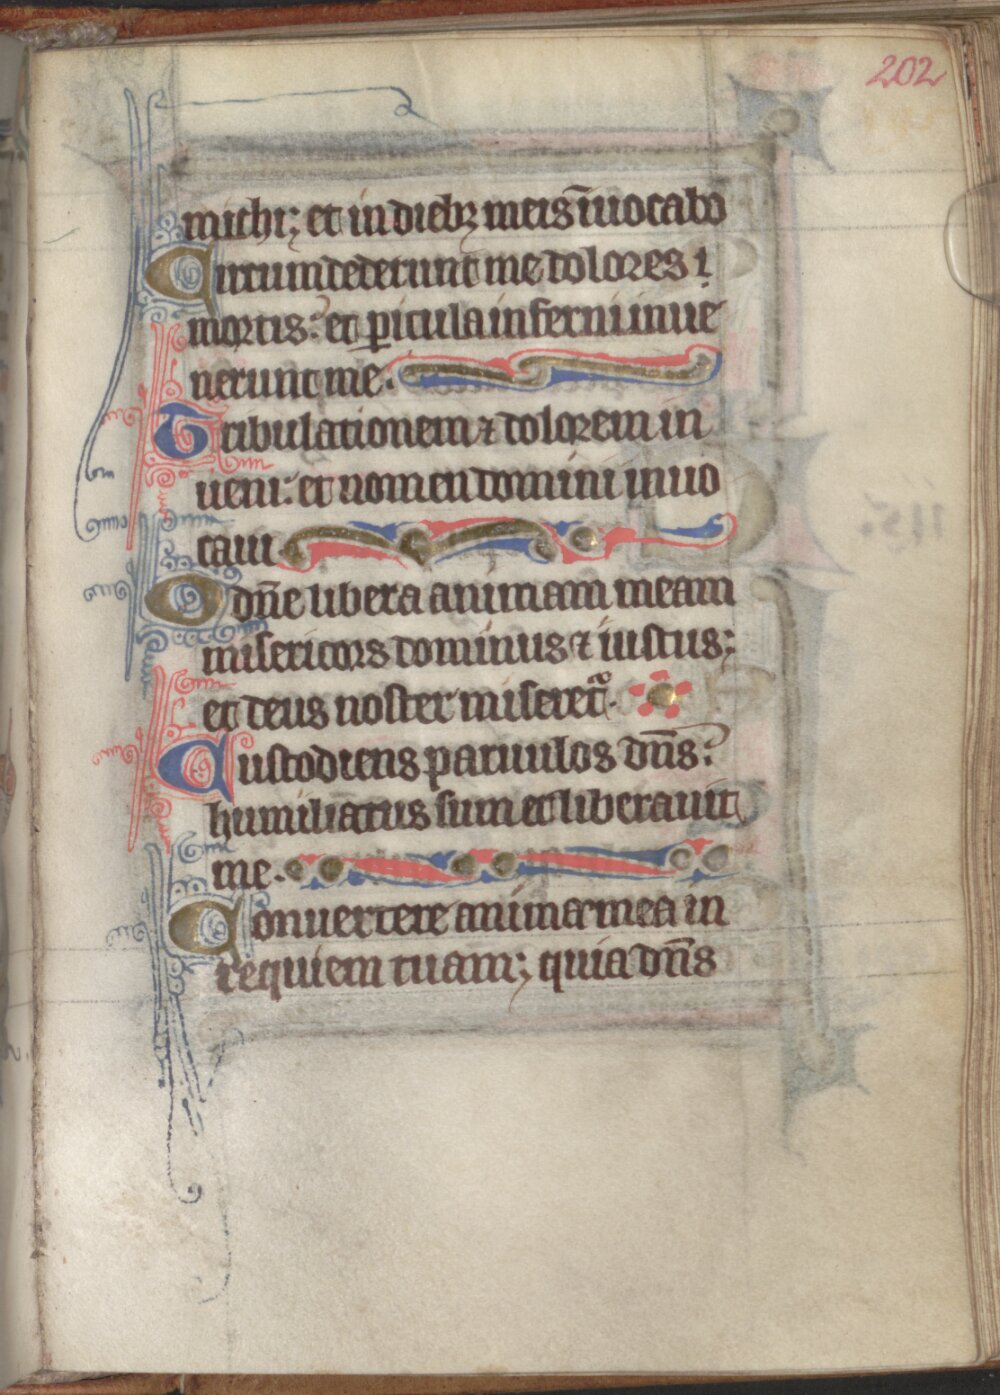 202
michi; et in dieb; meis īuocabo
Circumdederunt me dolores
mortis: et ꝑicula inferni inue
nerunt me.
Tribulationem ⁊ dolorem in
ueni: et nomen domini inuo
caui
O dn̄e libera animam meam
misericors dominus ⁊ iustus;
et deus noster miseret᷑.
Custodiens paruulos dn̄s:
humiliatus sum et liberauit
me.
Conuertere anima mea in
requiem tuam; quia dn̄s